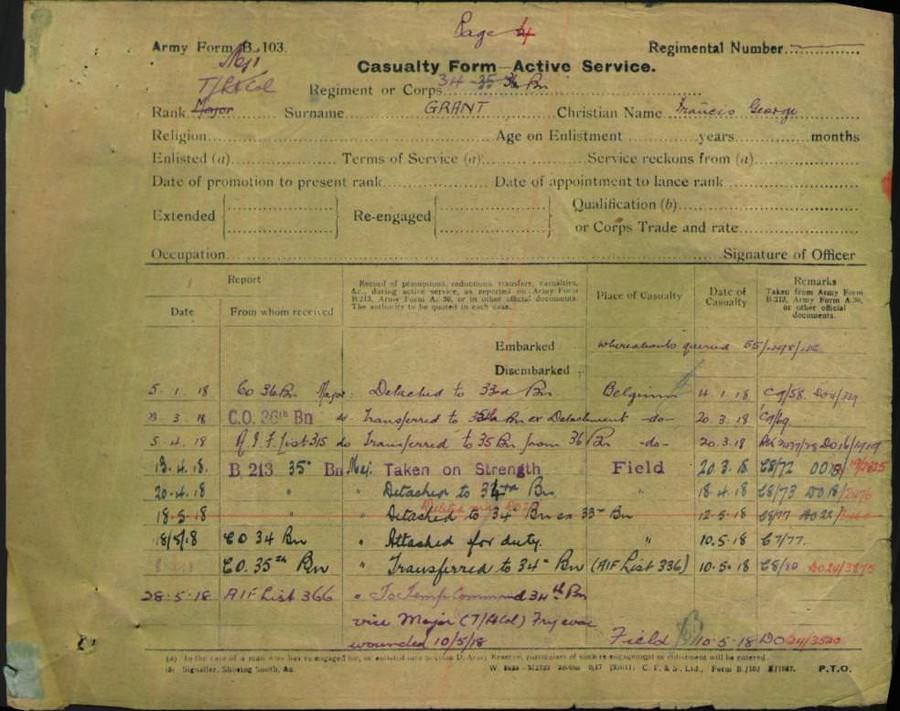 Page 4
Army Form B. 103.
Regimental Number
Maj
Casualty Form—Active Service.
T/Lt Col
Regiment or Corps 34 35 36 Bn
Rank Major Surname GRANT Christian Name Francis George
Religion Age on Enlistment years months
Enlisted (a) Terms of Service (a) Service reckons from (a)
Date of promotion to present rank Date of appointment to lance rank
Extended Re-engaged Qualification (b)
or Corps Trade and rate
Occupation Signature of Officer
Report Record of promotions, reductions, transfers, casualties, &c., during active service, as reported on Army Form B.213, Army Form A. 36, or in other official documents. The authority to be quoted in each case. Place of Casualty Date of Casualty Remarks Taken from Army Form B.213, Army Form A.36, or other official documents.
Date From whom received
Embarked whereabouts queried
Disembarked
5.1.18 CO 36 Bn Major Detached to 33rd Bn Belgium 4.1.18
3.18 C.O. 36th Bn do Transferred to 35th Bn ex Detachment -do- 20.3.18
5.4.18 A.I.F. List 315 do Transferred to 35 Bn from 36 Bn -do- 20.3.18
13.4.18. B 213 35" Bn Maj. Taken on Strength Field 20.3.18 C8/72
20.4.18 " " Detached to 34th Bn " 18.4.18 C8/73 DO18/
18-5-18 " " Detached to 34 Bn ex 33rd Bn 12-5-18 C8/77
18/5/18 CO 34 Bn " Attached for duty. " 10.5.18 C7/77.
CO. 35th Bn " Transferred to 34th Bn (AIF List 336) 10.5.18 C8/80 DO24/3875
28.5.18 AIF List 366 " To Temp Command 34th Bn
vice Major (T/Lt Col) Fry evac
wounded 10/5/18 Field 10-5-18 DO24/3520
P.T.O.